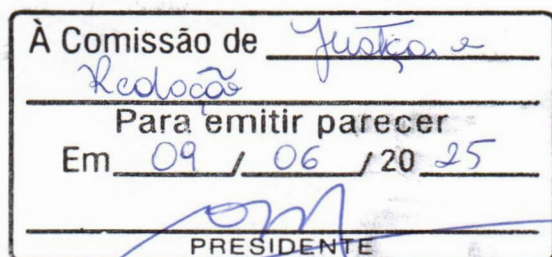 À Comissão de Justiça e
Redação
Para emitir parecer
Em 09 / 06 / 20 25
PRESIDENTE